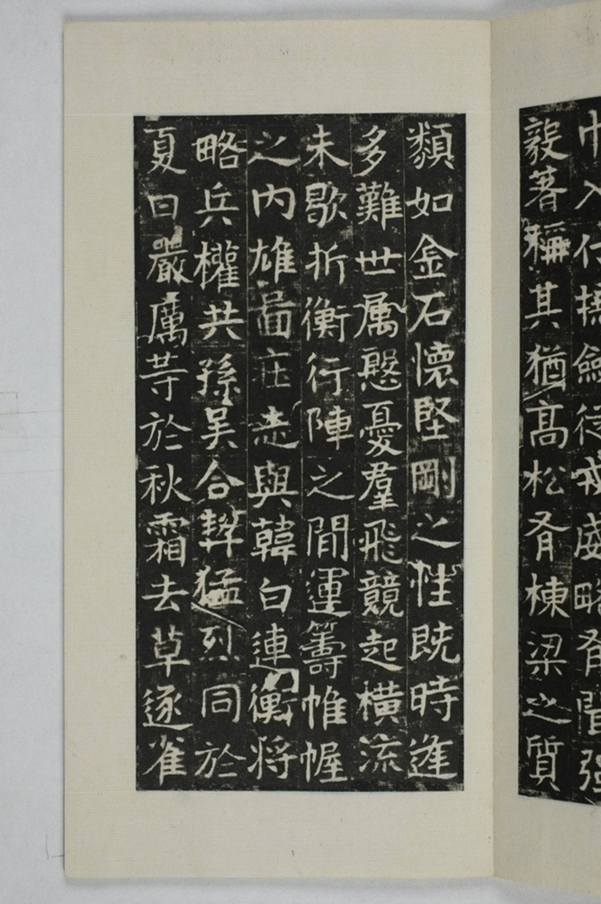 巾入行摽劍従戎威略有聞強
毅著稱其猶髙松有棟梁之質
纇如金石懷堅剛之性既時逢
多難世属慇憂羣飛競起横流
未歇折衝行陣之間運籌帷幄
之内雄啚壮志與韓白連衡将
略兵權共孫吴合契猛烈同於
夏日嚴厲等於秋霜去草逐雀